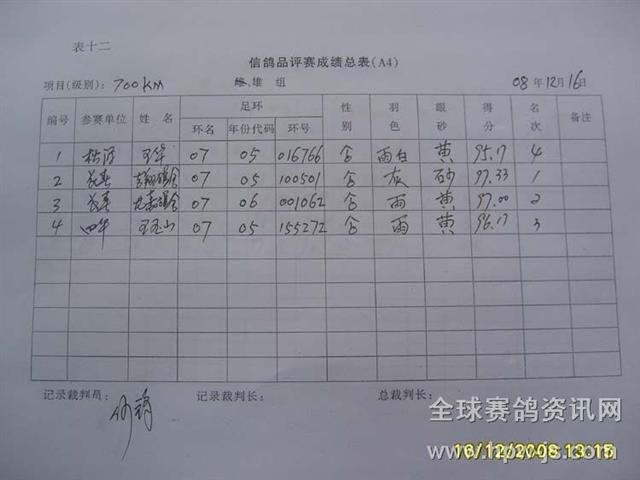 表十二
信鸽品评赛成绩总表(A4)
项目(级别): 700km 雄 组 08年12月16日
编号 参赛单位 姓名 足环 性别 羽色 眼砂 得分 名次 备注
环名 年份代码 环号
1 07 05 016766 合 雨白 黄 95.17 4
2 长春 07 05 100501 合 灰 砂 97.33 1
3 长春 07 06 001062 合 雨 黄 97.00 2
4 四平 王玉山 07 05 155272 合 雨 黄 96.17 3
记录裁判员: 记录裁判长: 总裁判长:
全球赛鸽资讯网
16/12/2008 13:15